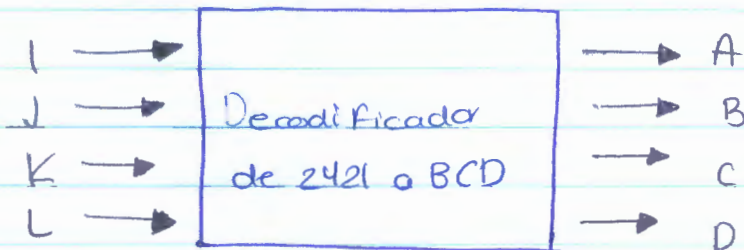 I
J
K
L
Decodificador
de 2421 a BCD
A
B
C
D